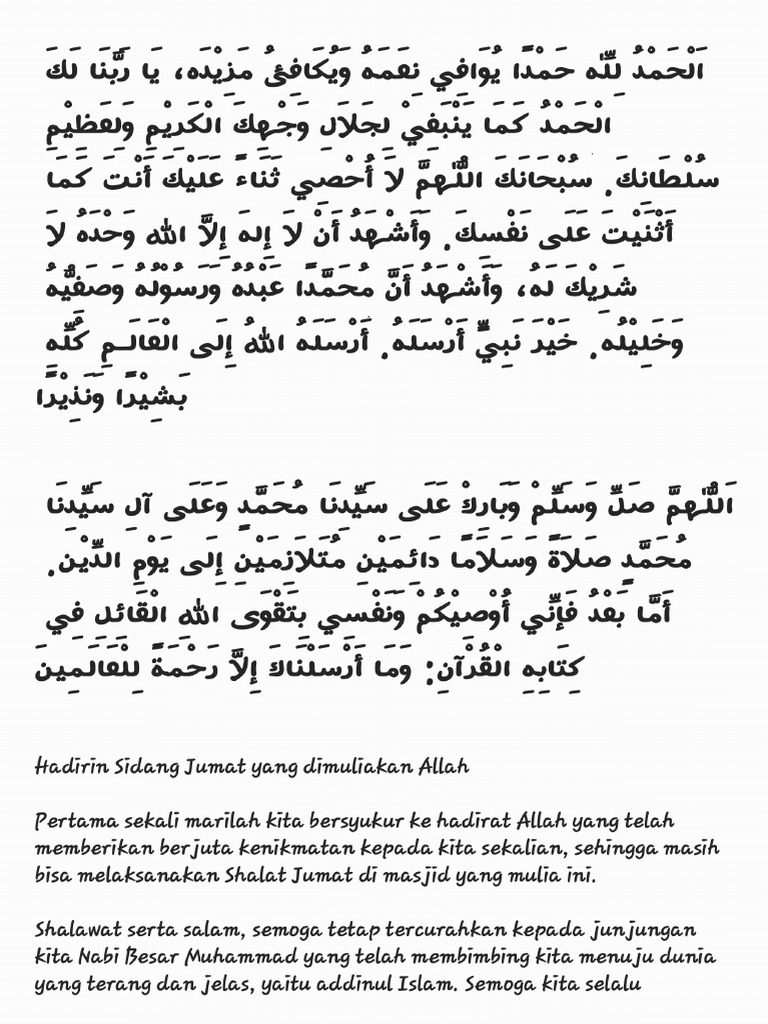 اَلْحَمْدُ لِلّٰهِ حَمْدًا يُوَافِي نِعَمَهُ وَيُكَافِئُ مَزِيْدَه، يَا رَبَّنَا لَكَ
الْحَمْدُ كَمَا يَنْبَغِيْ لِجَلَالِ وَجْهِكَ الْكَرِيْمِ وَلِعَظِيْمِ
سُلْطَانِكَ. سُبْحَانَكَ اللّٰهُمَّ لَا أُحْصِي ثَنَاءً عَلَيْكَ أَنْتَ كَمَا
أَثْنَيْتَ عَلَى نَفْسِكَ. وَأَشْهَدُ أَنْ لَا إِلهَ إِلَّا الله وَحْدَهُ لَا
شَرِيْكَ لَهُ، وَأَشْهَدُ أَنَّ مُحَمَّدًا عَبْدُهُ وَرَسُوْلُهُ وَصَفِيُّهُ
وَخَلِيْلُه. خَيْرَ نَبِيٍّ أَرْسَلَهُ. أَرْسَلَهُ اللهُ إِلَى الْعَالَـمِ كُلِّهِ
بَشِيْرًا وَنَذِيْرًا
اَللّٰهُمَّ صَلِّ وَسَلِّمْ وَبَارِكْ عَلَى سَيِّدِنَا مُحَمَّدٍ وَعَلَى آلِ سَيِّدِنَا
مُحَمَّدٍ صَلَاةً وَسَلَامًا دَائِمَيْنِ مُتَلَازِمَيْنِ إِلَى يَوْمِ الدِّيْنِ.
أَمَّا بَعْدُ فَإِنِّي أُوْصِيْكُمْ وَنَفْسِي بِتَقْوَى الله الْقَائِلِ فِي
كِتَابِهِ الْقُرْآنِ: وَمَا أَرْسَلْنَاكَ إِلَّا رَحْمَةً لِلْعَالَمِينَ
Hadirin Sidang Jumat yang dimuliakan Allah
Pertama sekali marilah kita bersyukur ke hadirat Allah yang telah
memberikan berjuta kenikmatan kepada kita sekalian, sehingga masih
bisa melaksanakan Shalat Jumat di masjid yang mulia ini.
Shalawat serta salam, semoga tetap tercurahkan kepada junjungan
kita Nabi Besar Muhammad yang telah membimbing kita menuju dunia
yang terang dan jelas, yaitu addinul Islam. Semoga kita selalu